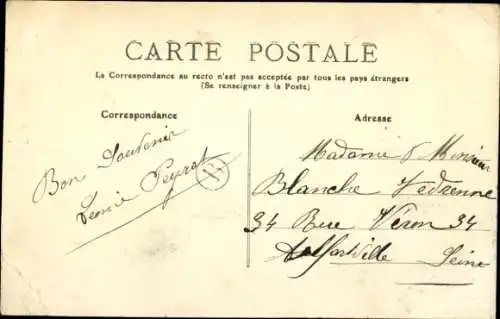 CARTE POSTALE
La Correspondance au recto n'est pas acceptée par tous les pays étrangers
(Se renseigner à la Poste)
Correspondance
Adresse
Bon Souvenir
Léonie Peyrat
B
Madame & Monsieur
Blanche Védrenne
34 Rue Véron 34
Alfortville Seine